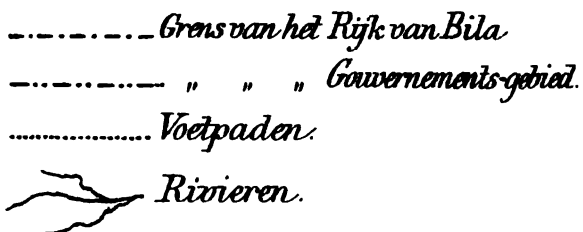 Grens van het Rijk van Bila
„ „ „ Gouvernements-gebied.
Voetpaden.
Rivieren.